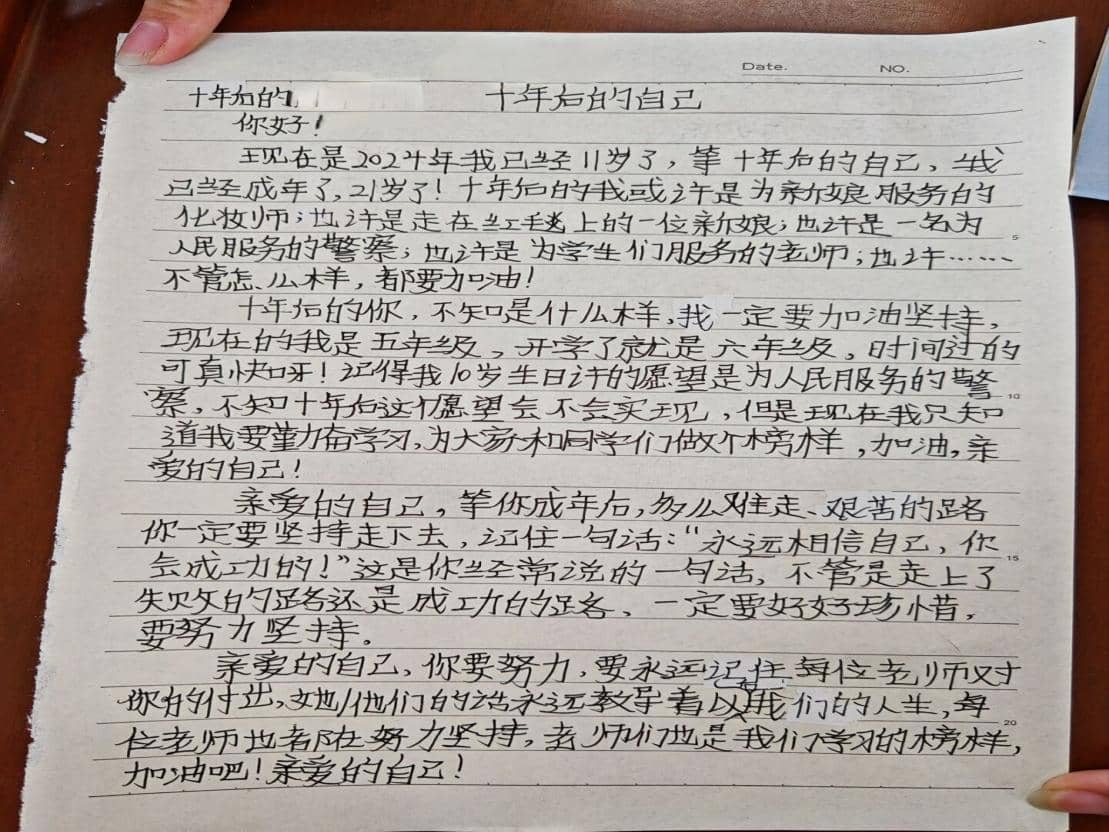 Date. NO.
十年后的 十年后的自己
你好！
现在是2024年我已经11岁了，等十年后的自己，我
已经成年了，21岁了！十年后的我或许是为新娘服务的
化妆师；也许是走在红毯上的一位新娘；也许是一名为
人民服务的警察；也许是为学生们服务的老师；也许……
不管怎么样，都要加油！
十年后的你，不知是什么样，我一定要加油坚持，
现在的我是五年级，开学了就是六年级，时间过的
可真快呀！记得我10岁生日许的愿望是为人民服务的警
察，不知十年后这个愿望会不会实现，但是现在我只知
道我要勤奋学习，为大家和同学们做个榜样，加油，亲
爱的自己！
亲爱的自己，等你成年后，多么难走、艰苦的路
你一定要坚持走下去，记住一句话：“永远相信自己，你
会成功的！”这是你经常说的一句话，不管是走上了
失败的路还是成功的路、一定要好好珍惜，
要努力坚持。
亲爱的自己，你要努力，要永远记住每位老师对
你的付出，她/他们的话永远教导着我们的人生，每
位老师也都在努力坚持，老师们也是我们学习的榜样，
加油吧！亲爱的自己！
5
10
15
20